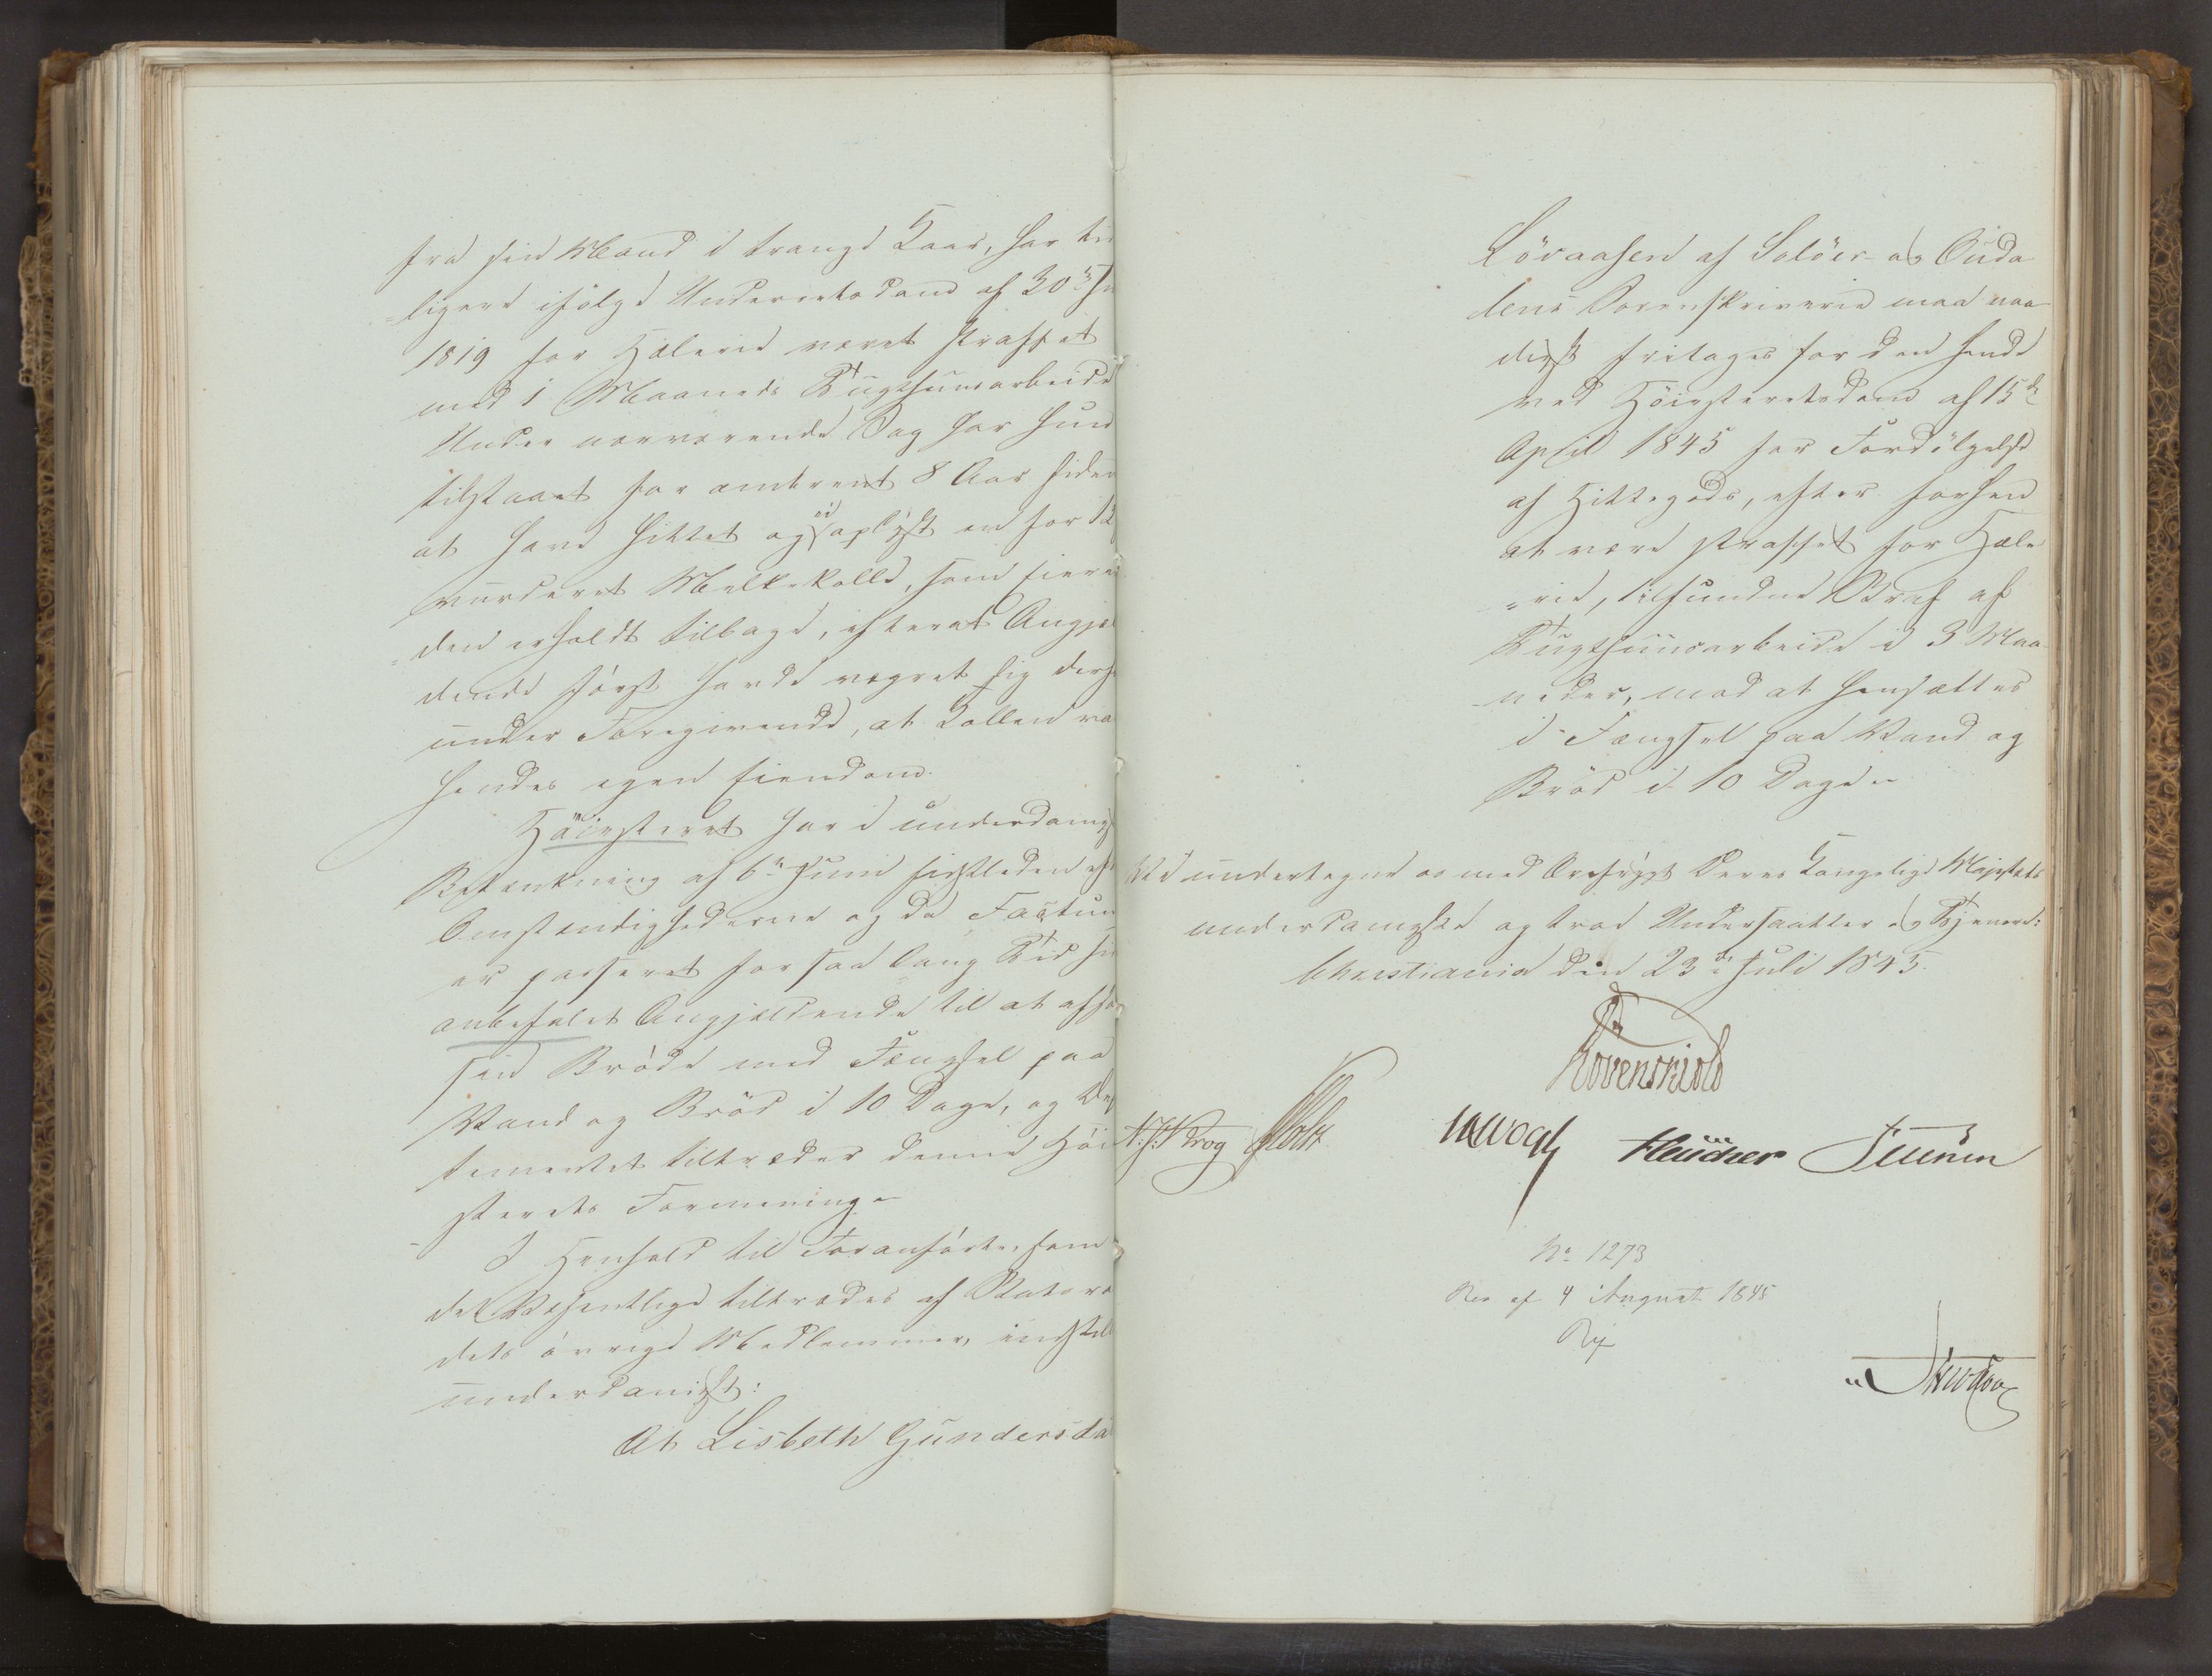 fra sin Mand i trange Kaar, har tid
ligere ifölge Underretsdom af 30te
1819 for Hæleri været straffet
med 1 Maaneds Tugthusarbeide
Under nærværende Sag har hun
tilstaaet for omtrent 8 Aar siden
at have hittet og ei oplyst en for 12
vurderet Melkekolle, som Eieren
den erholdt tilbage, efterat Angjæl
dende först havde vægret sig derfor
under Foregivende, at Kollen var
hendes egen Eiendom.
Höiesteret har i underdanigst
Betænkning af 6te Juni sidstleden efter
Omstændighederne og da Factum
er passeret for saa lang Tid siden
anbefalet Angjældende til at afsone
sin Bröde med Fængsel paa
Vand og Bröd i 10 Dage, og Depar
tementet tiltræder denne Höie
sterets Formening.
I Henhold til Foranförte, som i
det Væsentlige tiltrædes af Statsraa
dets övrige Medlemmer, indstilles
underdanigst:
At Lisbeth Gundersdatter
Lövaasen af Solöer og Ouda
lens Sorenskriverie maa naa
digst fritages for den hende
ved Höiesteretsdom af 15de
April 1845 for Fordölgelse
af Hittegods, efter forhen
at være straffet for Hæle
rie, tilfundne Straf af
Tugthuusarbeide i 3 Maa
neder, mod at hensættes
i Fængsel paa Vand og
Bröd i 10 Dage.
Vi undertegne os med Ærefrygt Deres Kongelige Majestæts
underdanigste og troe Undersaatter og Tjenere:
Christiania den 23de Juli 1845.
Lövenskiold
Krog Holst Vogt Fleischer
No 1273
Res af 4 August 1845